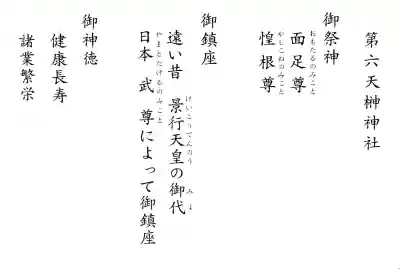 第六天榊神社
御祭神
面足尊
惶根尊
御鎮座
遠い昔 景行天皇の御代
日本武尊によって御鎮座
御神徳
健康長寿
諸業繁栄
おもたるのみこと
かしこねのみこと
けいこうてんのう
みよ
やまとたけるのみこと